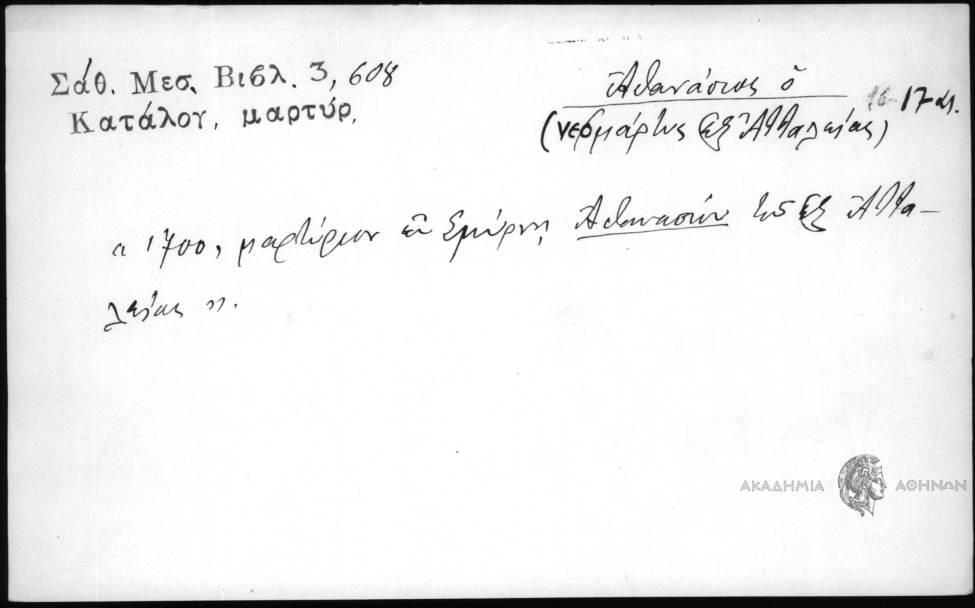 Σάθ. Μεσ. Βιβλ. 3, 608
Κατάλογ. μαρτύρ.
Ἀθανάσιος ὁ
16-17 αἰ.
(νεομάρτυς ἐξ Ἀτταλείας)
« 1700, μαρτύριον ἐν Σμύρνῃ Ἀθανασίου τοῦ ἐξ Ἀττα-
λείας ».
ΑΚΑΔΗΜΙΑ ΑΘΗΝΩΝ